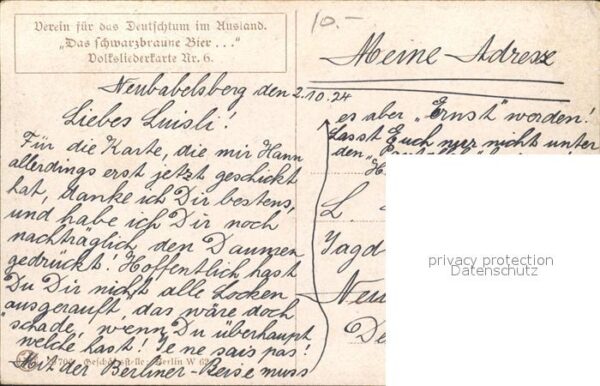 Verein für das Deutschtum im Ausland.
"Das schwarzbraune Bier..."
Volksliederkarte Nr. 6.
10.-
Meine-Adresse
Neubabelsberg den 2.10.24
Liebes Luisli!
Für die Karte, die mir Hann
allerdings erst jetzt geschickt
hat, danke ich Dir bestens,
und habe ich Dir noch
nachträglich den Daumen
gedrückt! Hoffentlich hast
Du Dir nicht alle Locken
ausgerauft, das wäre doch
schade, wenn Du überhaupt
welche hast! Je ne sais pas!
Geschäftsstelle: Berlin W 62
Mit der Berliner-Reise muss
es aber "Ernst" worden!
Lasst Euch nur nicht unter
den
L
Jagd
Neu
De
privacy protection
Datenschutz